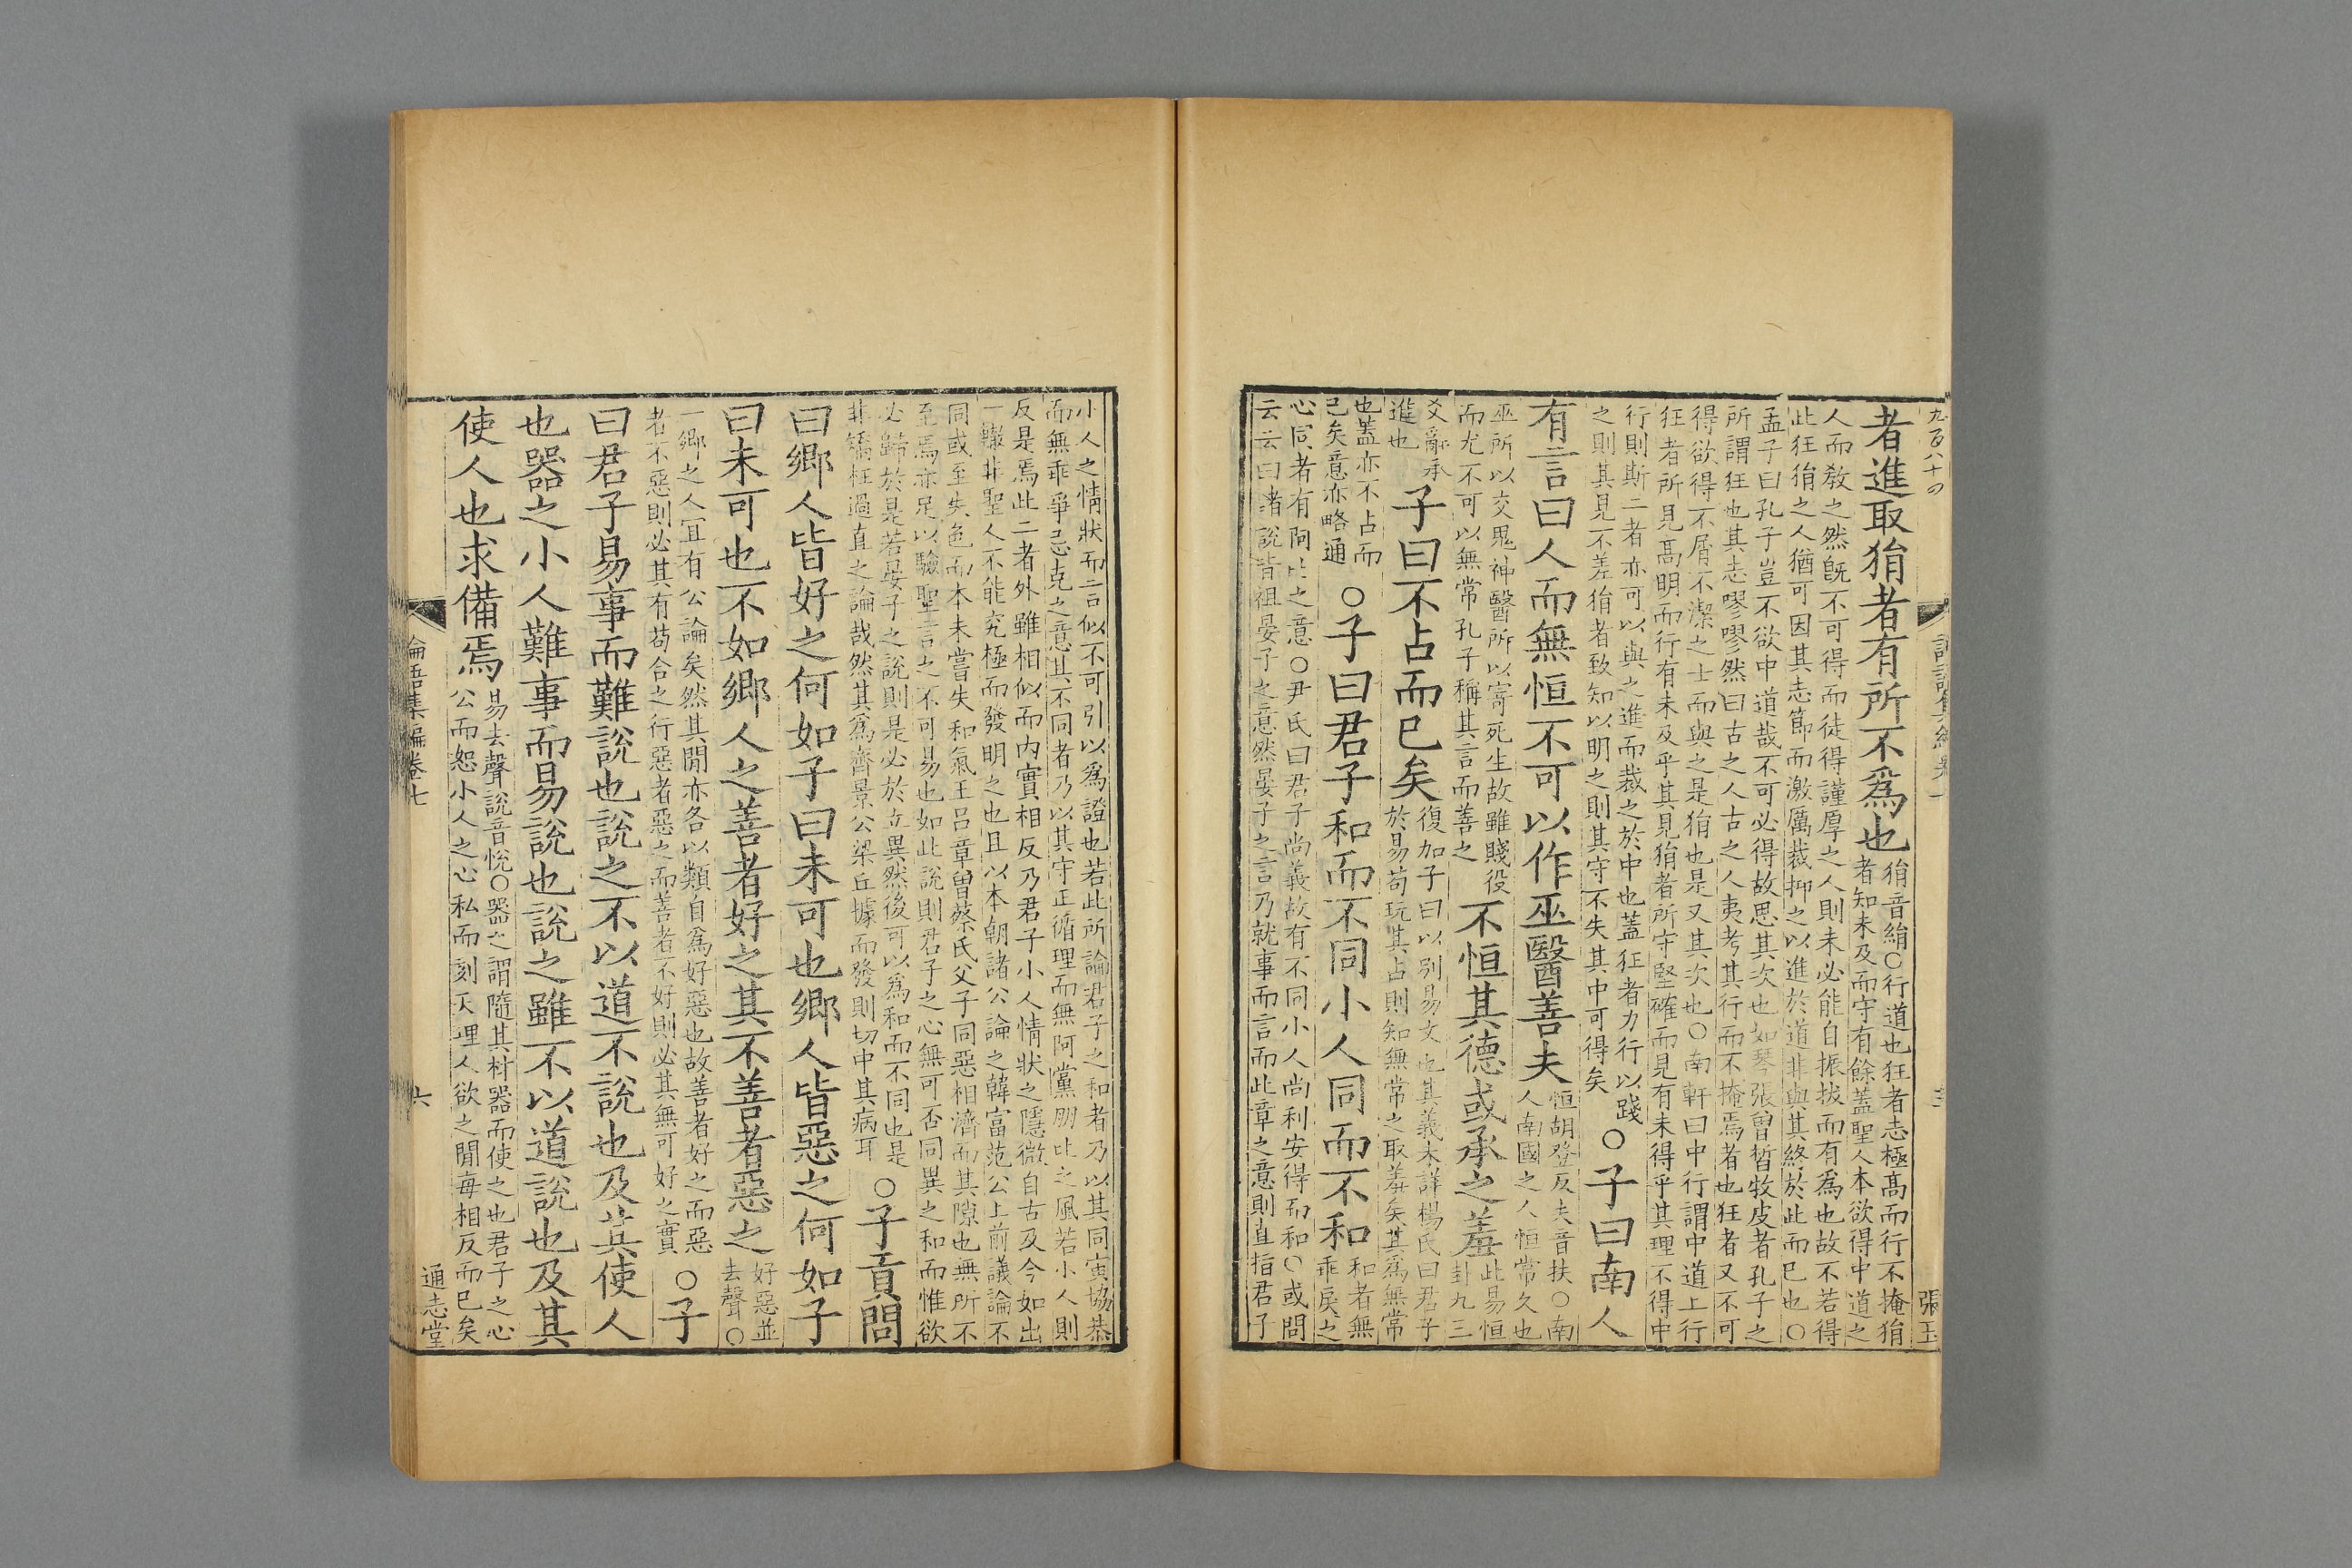 九百八十四
張玉
者進取狷者有所不爲也
狷音絹○行道也狂者志極高而行不掩狷
者知未及而守有餘蓋聖人本欲得中道之
人而教之然旣不可得而徒得謹厚之人則未必能自振拔而有爲也故不若得
此狂狷之人猶可因其志節而激厲裁抑之以進於道非與其終於此而已也○
孟子曰孔子豈不欲中道哉不可必得故思其次也如琴張曾晳牧皮者孔子之
所謂狂也其志嘐嘐然曰古之人古之人夷考其行而不掩焉者也狂者又不可
得欲得不屑不潔之士而與之是狷也是又其次也○南軒曰中行謂中道上行
狂者所見高明而行有未及乎其見狷者所守堅確而見有未得乎其理不得中
行則斯二者亦可以與之進而裁之於中也蓋狂者力行以踐
之則其見不差狷者致知以明之則其守不失其中可得矣
○子曰南人
有言曰人而無恒不可以作巫醫善夫
恒胡登反夫音扶○南
人南國之人恒常久也
巫所以交鬼神醫所以寄死生故雖賤役
而尤不可以無常孔子稱其言而善之
不恒其德或承之羞
此易恒
卦九三
爻辭承
進也
子曰不占而已矣
復加子曰以別易文也其義未詳楊氏曰君子
於易苟玩其占則知無常之取羞矣其爲無常
也蓋亦不占而
已矣意亦略通
○子曰君子和而不同小人同而不和
和者無
乖戾之
心同者有阿比之意○尹氏曰君子尚義故有不同小人尚利安得而和○或問
云云曰諸說皆祖晏子之意然晏子之言乃就事而言而此章之意則直指君子
小人之情狀而言似不可引以爲證也若此所論君子之和者乃以其同寅協恭
而無乖爭忌克之意其不同者乃以其守正循理而無阿黨朋比之風若小人則
反是焉此二者外雖相似而内實相反乃君子小人情狀之隱微自古及今如出
一轍非聖人不能究極而發明之也且以本朝諸公論之韓富范公上前議論不
同或至失色而本未嘗失和氣王呂章曾蔡氏父子同惡相濟而其隙也無所不
至焉亦足以驗聖言之不可易也如此說則君子之心無可否同異之和而惟欲
必歸於是若晏子之說則是必於立異然後可以爲和而不同也是
非矯枉過直之論哉然其爲齊景公梁丘據而發則切中其病耳
○子貢問
曰鄉人皆好之何如子曰未可也鄉人皆惡之何如子
曰未可也不如鄉人之善者好之其不善者惡之
好惡並
去聲○
一鄉之人宜有公論矣然其閒亦各以類自爲好惡也故善者好之而惡
者不惡則必其有苟合之行惡者惡之而善者不好則必其無可好之實
○子
曰君子易事而難說也說之不以道不說也及其使人
也器之小人難事而易說也說之雖不以道說也及其
使人也求備焉
易去聲說音悅○器之謂隨其材器而使之也君子之心
公而恕小人之心私而刻天理人欲之閒每相反而已矣
論語集編卷七
六
通志堂